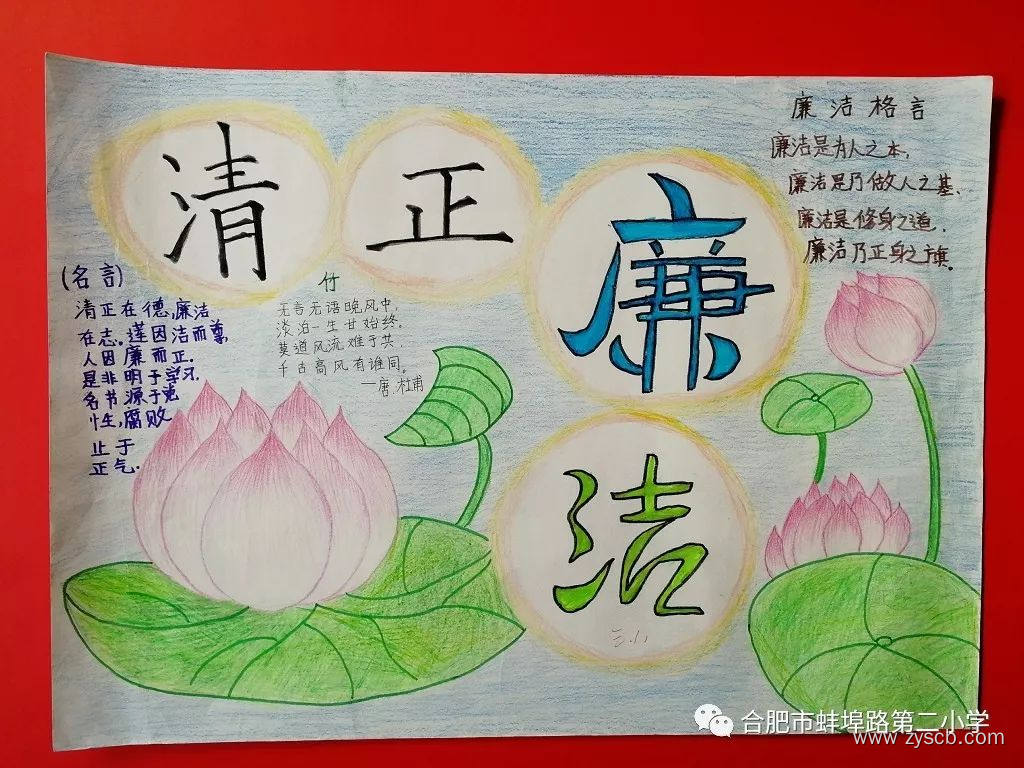 清正
廉
洁
三.小
廉洁格言
廉洁是为人之本,
廉洁是乃做人之基、
廉洁是修身之道,
廉洁乃正身之旗。
(名言)
清正在德,廉洁
在志。莲因洁而尊,
人因廉而正.
是非明于学习,
名书源于
性,腐败
止于
正气.
竹
无言无语晚风中,
淡泊一生甘始终。
莫道风流难于共,
千古高风有谁同。
—唐.杜甫
合肥市蚌埠路第二小学
www.zyscb.com